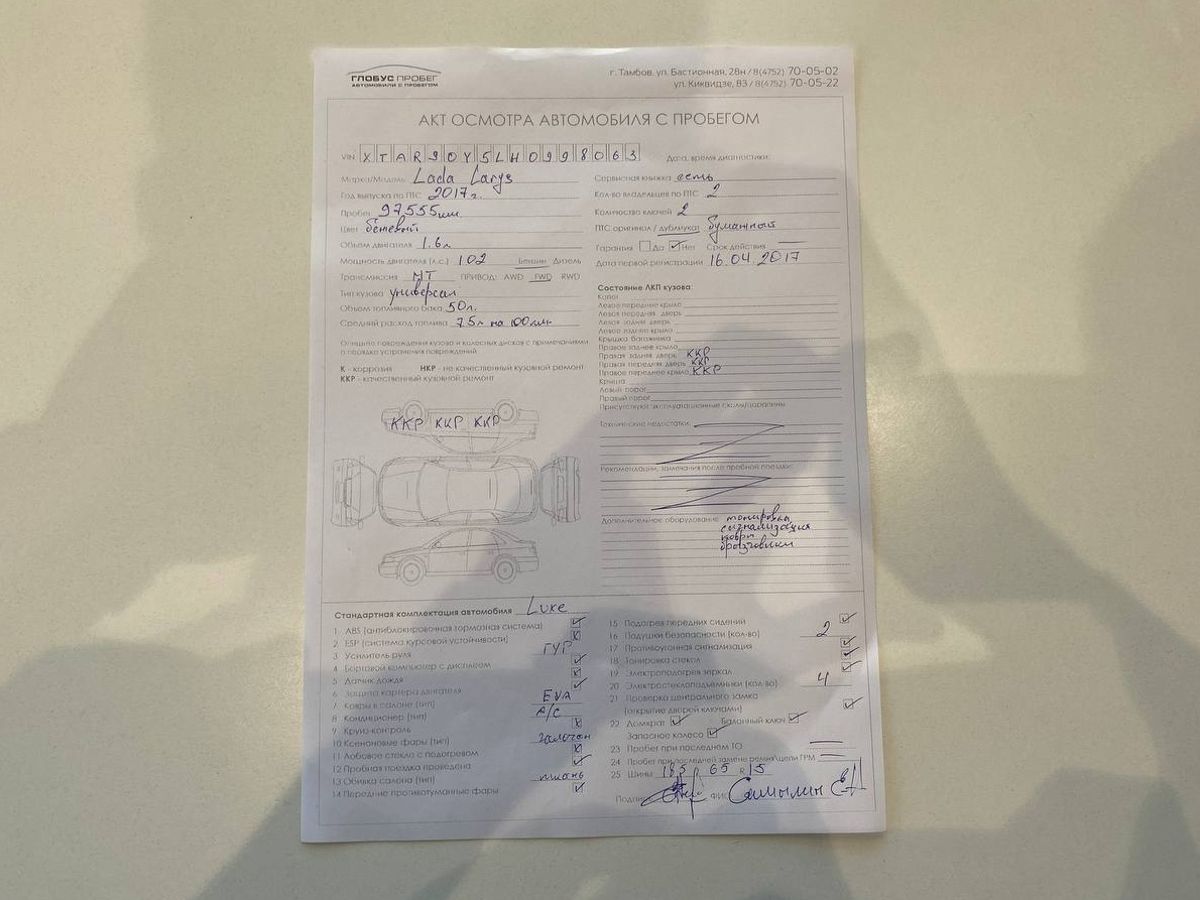 ГЛОБУС ПРОБЕГ
АВТОМОБИЛИ С ПРОБЕГОМ
г. Тамбов, ул. Бастионная, 28н / 8(4752) 70-05-02
ул. Киквидзе, 83 / 8(4752) 70-05-22
АКТ ОСМОТРА АВТОМОБИЛЯ С ПРОБЕГОМ
VIN XTAR90Y5LH0998063
Дата, время диагностики:
Марка/Модель Lada Largs
Год выпуска по ПТС 2017 г.
Пробег 97555 км
Цвет бежевый
Объем двигателя 1.6 л
Мощность двигателя (л.с.) 102 Бензин Дизель
Трансмиссия МТ ПРИВОД: AWD FWD RWD
Тип кузова универсал
Объем топливного бака 50 л.
Средний расход топлива 7.5 л на 100 км
Опишите повреждения кузова и колесных дисков с примечаниями
о порядке устранения повреждений
К - коррозия НКР - не качественный кузовной ремонт
ККР - качественный кузовной ремонт
ККР ККР ККР
Сервисная книжка есть
Кол-во владельцев по ПТС 2
Количество ключей 2
ПТС оригинал / дубликат бумажный
Гарантия Да Нет Срок действия
Дата первой регистрации 16.04.2017
Состояние ЛКП кузова:
Капот
Левое переднее крыло
Левая передняя дверь
Левая задняя дверь
Левое заднее крыло
Крышка багажника
Правое заднее крыло
Правая задняя дверь ККР
Правая передняя дверь ККР
Правое переднее крыло ККР
Крыша
Левый порог
Правый порог
Присутствуют эксплуатационные сколы/царапины
Технические недостатки:
Рекомендации, замечания после пробной поездки:
Дополнительное оборудование тонировка
сигнализация
ковры
брызговики
Стандартная комплектация автомобиля Luxe
1 ABS (антиблокировочная тормозная система)
2 ESP (система курсовой устойчивости)
3 Усилитель руля ГУР
4 Бортовой компьютер с дисплеем
5 Датчик дождя
6 Защита картера двигателя
7 Ковры в салоне (тип) EVA
8 Кондиционер (тип) A/C
9 Круиз-контроль
10 Ксеноновые фары (тип) галоген
11 Лобовое стекло с подогревом
12 Пробная поездка проведена
13 Обивка салона (тип) ткань
14 Передние противотуманные фары
15 Подогрев передних сидений
16 Подушки безопасности (кол-во) 2
17 Противоугонная сигнализация
18 Тонировка стекол
19 Электроподогрев зеркал
20 Электростеклоподъемники (кол-во) 4
21 Проверка центрального замка
(открытие дверей ключами)
22 Домкрат Балонный ключ
Запасное колесо
23 Пробег при последнем ТО
24 Пробег при последней замене ремня/цепи ГРМ
25 Шины 185 65 R 15
Подпись ФИО